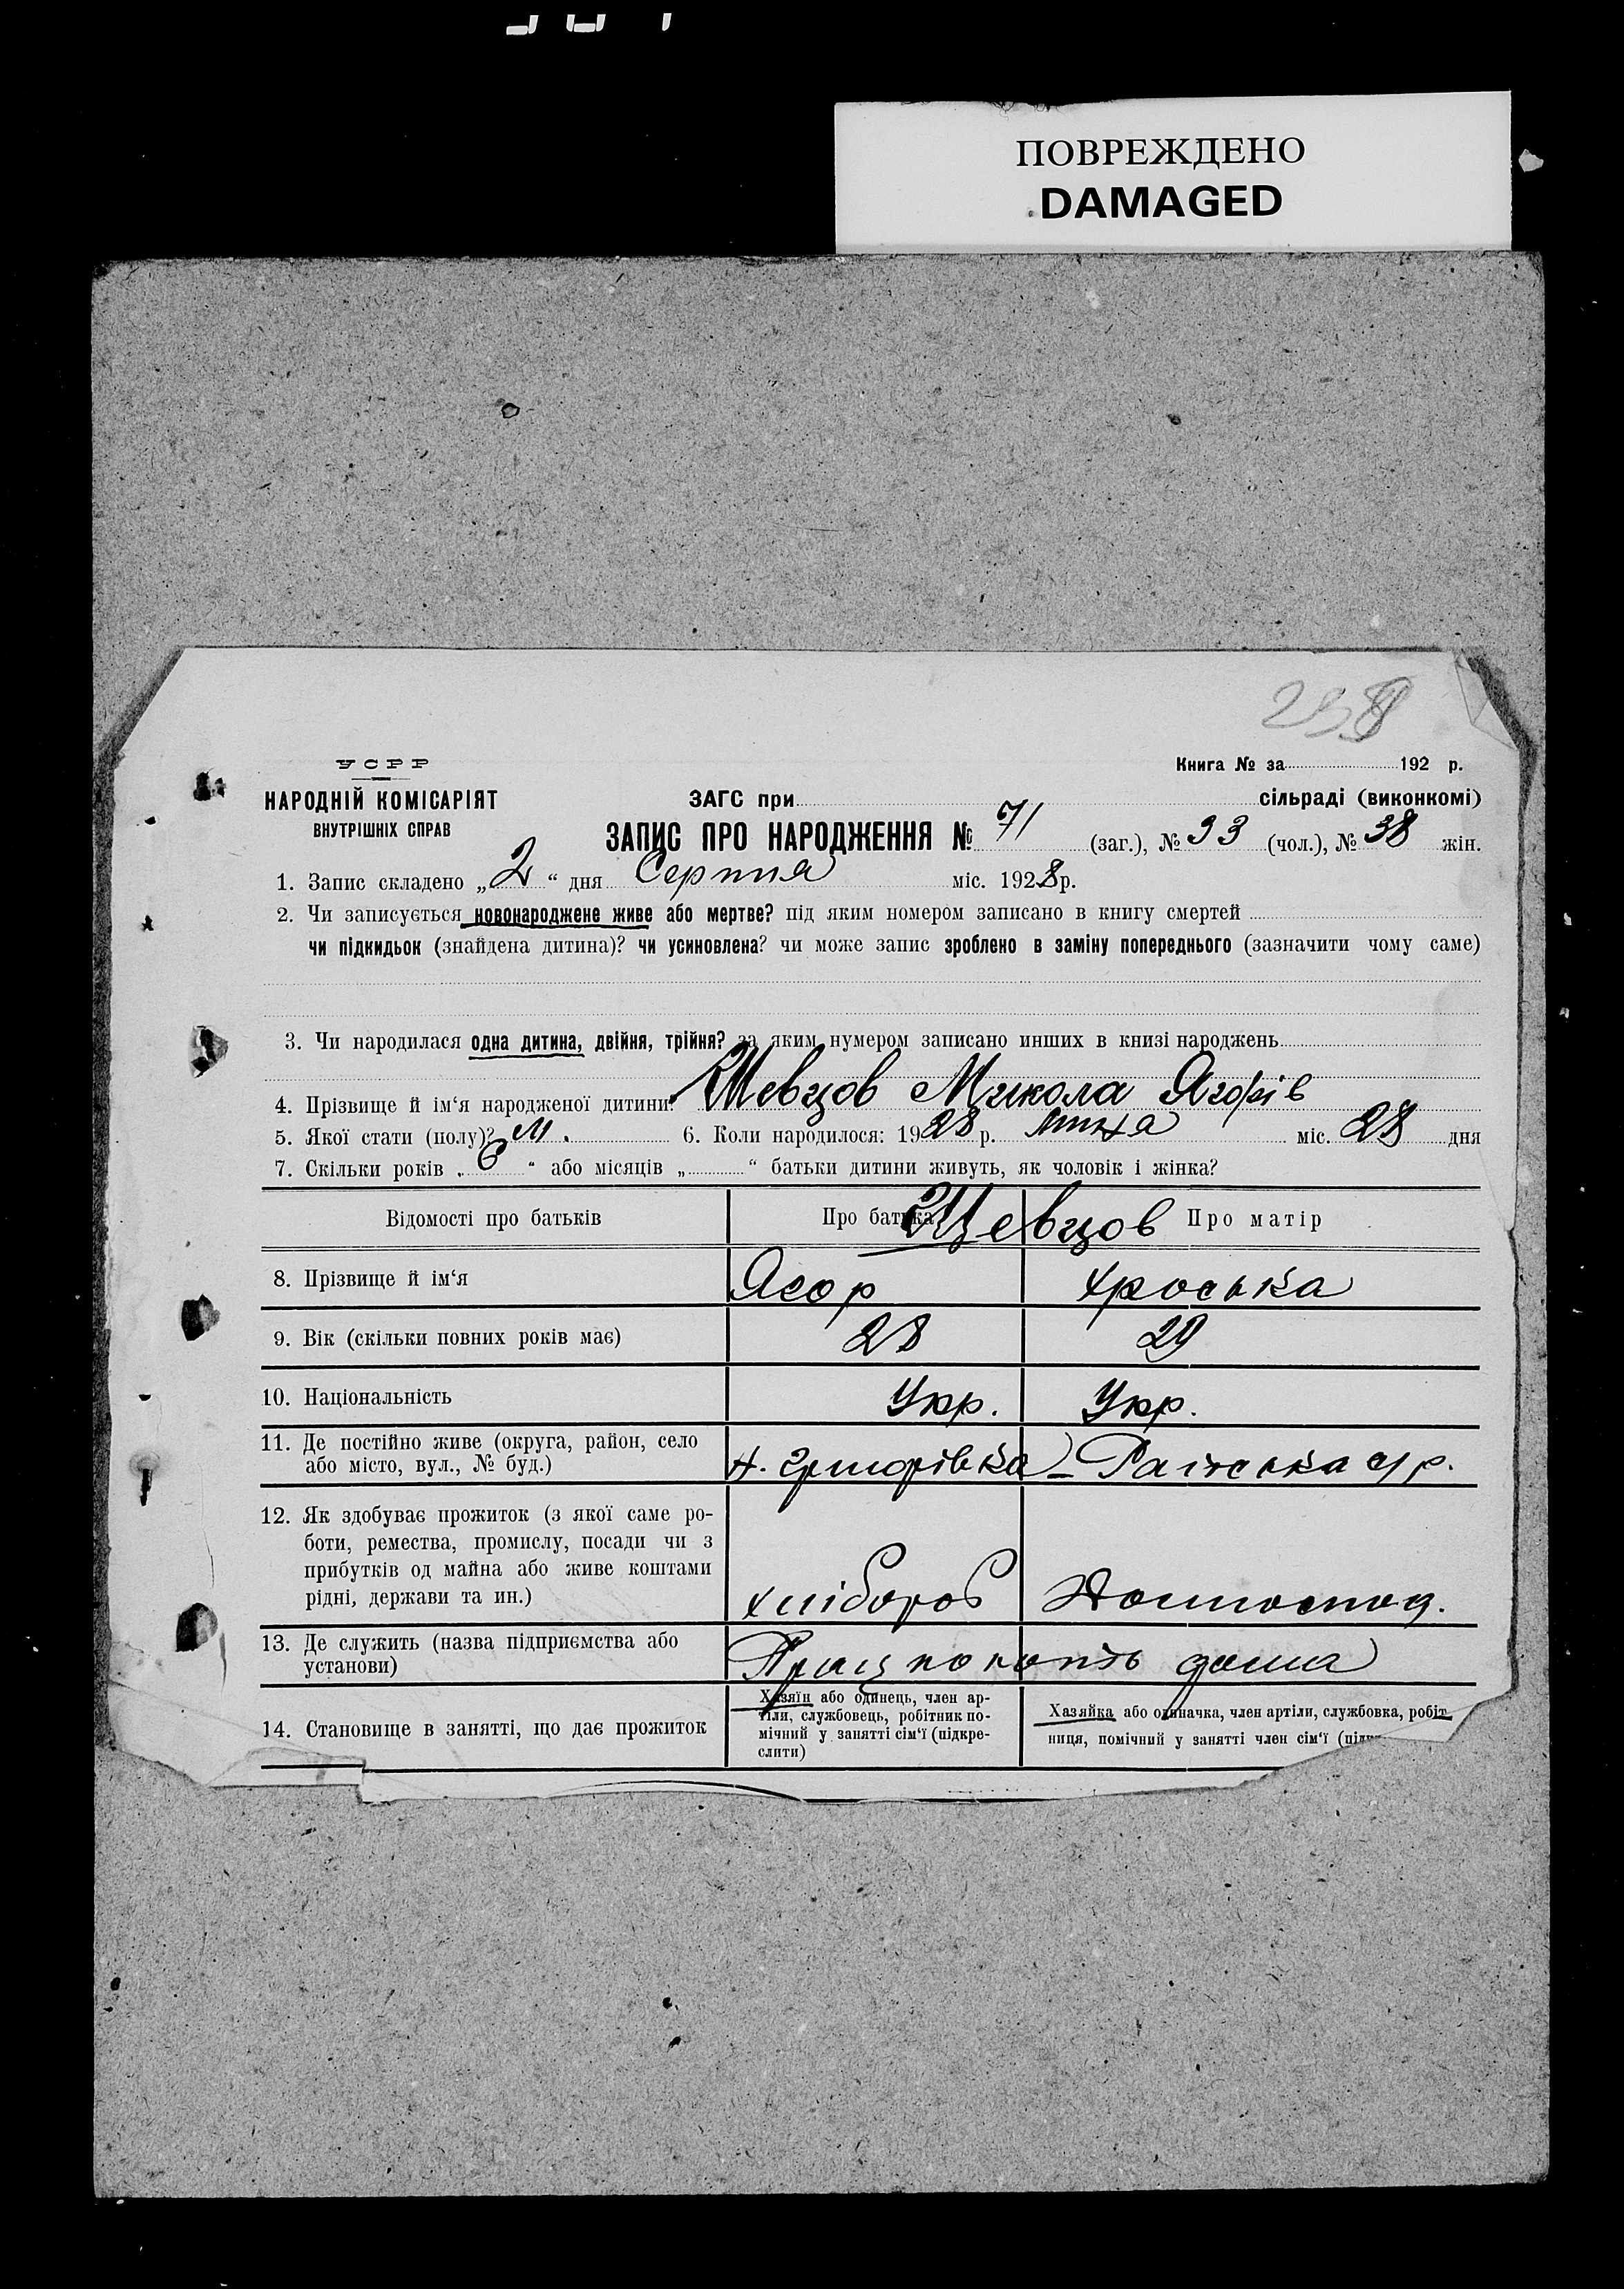 ПОВРЕЖДЕНО
DAMAGED
УСРР
Книга № за 192 р.
НАРОДНІЙ КОМІСАРІЯТ
ВНУТРІШНІХ СПРАВ
ЗАГС при сільраді (виконкомі)
ЗАПИС ПРО НАРОДЖЕННЯ № 71 (заг.), № 33 (чол.), № 38 жін.
1. Запис складено „ 2 “ дня Серпня міс. 1928 р.
2. Чи записується новонароджене живе або мертве? під яким номером записано в книгу смертей
чи підкидьок (знайдена дитина)? чи усиновлена? чи може запис зроблено в заміну попереднього (зазначити чому саме)
3. Чи народилася одна дитина, двійня, трійня? за яким нумером записано инших в книзі народжень
4. Прізвище й ім‘я народженої дитини: Шевцов Микола
5. Якої стати (полу)? М. 6. Коли народилося: 1928 р. міс. 28 дня
7. Скільки років „ 6 “ або місяців „ “ батьки дитини живуть, як чоловік і жінка?
Відомості про батьків Про батька Шевцов Про матір
8. Прізвище й ім‘я
9. Вік (скільки повних років має) 28 29
10. Національність Укр. Укр.
11. Де постійно живе (округа, район, село
або місто, вул., № буд.) с/р.
12. Як здобуває прожиток (з якої саме ро-
боти, ремества, промислу, посади чи з
прибутків од майна або живе коштами
рідні, держави та ин.) хлібороб
13. Де служить (назва підприємства або
установи) Працюють дома
14. Становище в занятті, що дає прожиток
Хазяїн або одинець, член ар-
тіли, службовець, робітник по-
мічний у занятті сім‘ї (підкре-
слити)
Хазяйка або одиначка, член артіли, службовка, робіт
ниця, помічний у занятті член сім‘ї